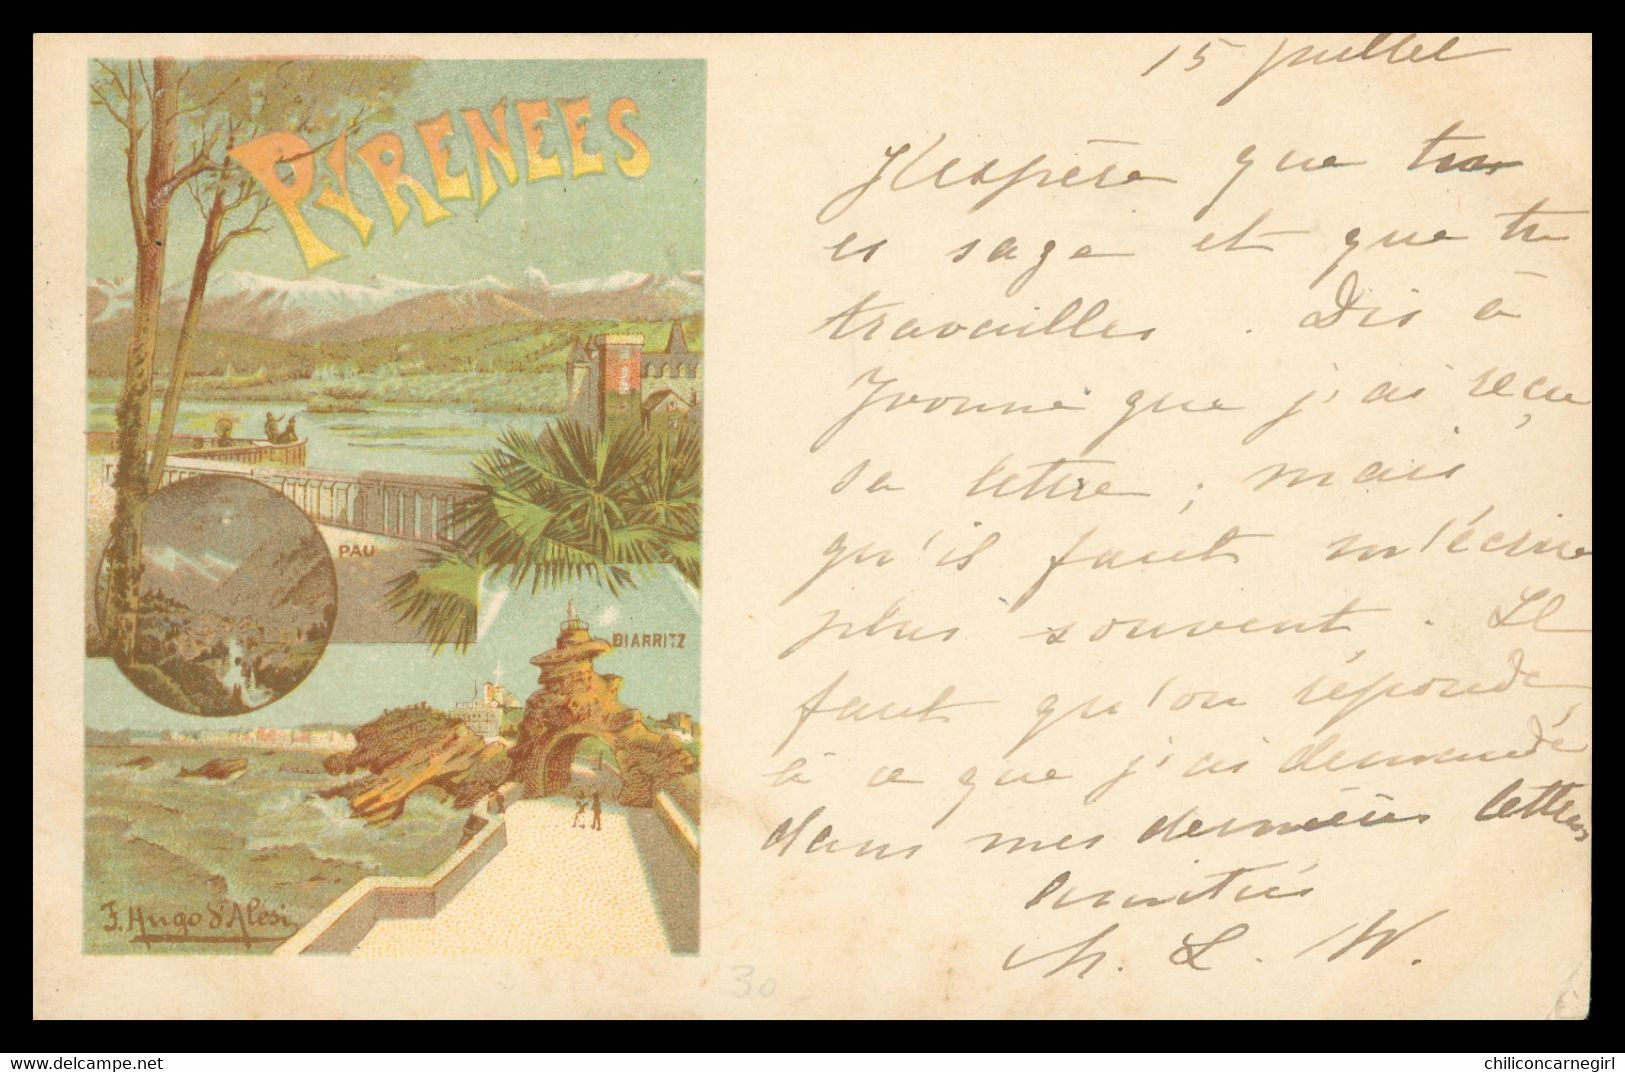 PYRENEES
PAU
BIARRITZ
F. Hugo d'Alesi
15 Juillet
J'espère que tu
es sage et que tu
travailles. Dis à
Yvonne que j'ai reçu
sa lettre; mais
qu'il faut m'écrire
plus souvent. Il
faut qu'on réponde
à ce que j'ai demandé
dans mes dernières lettres
amitiés
M. L. W.
30
Delcampe.net
chiliconcarnegirl